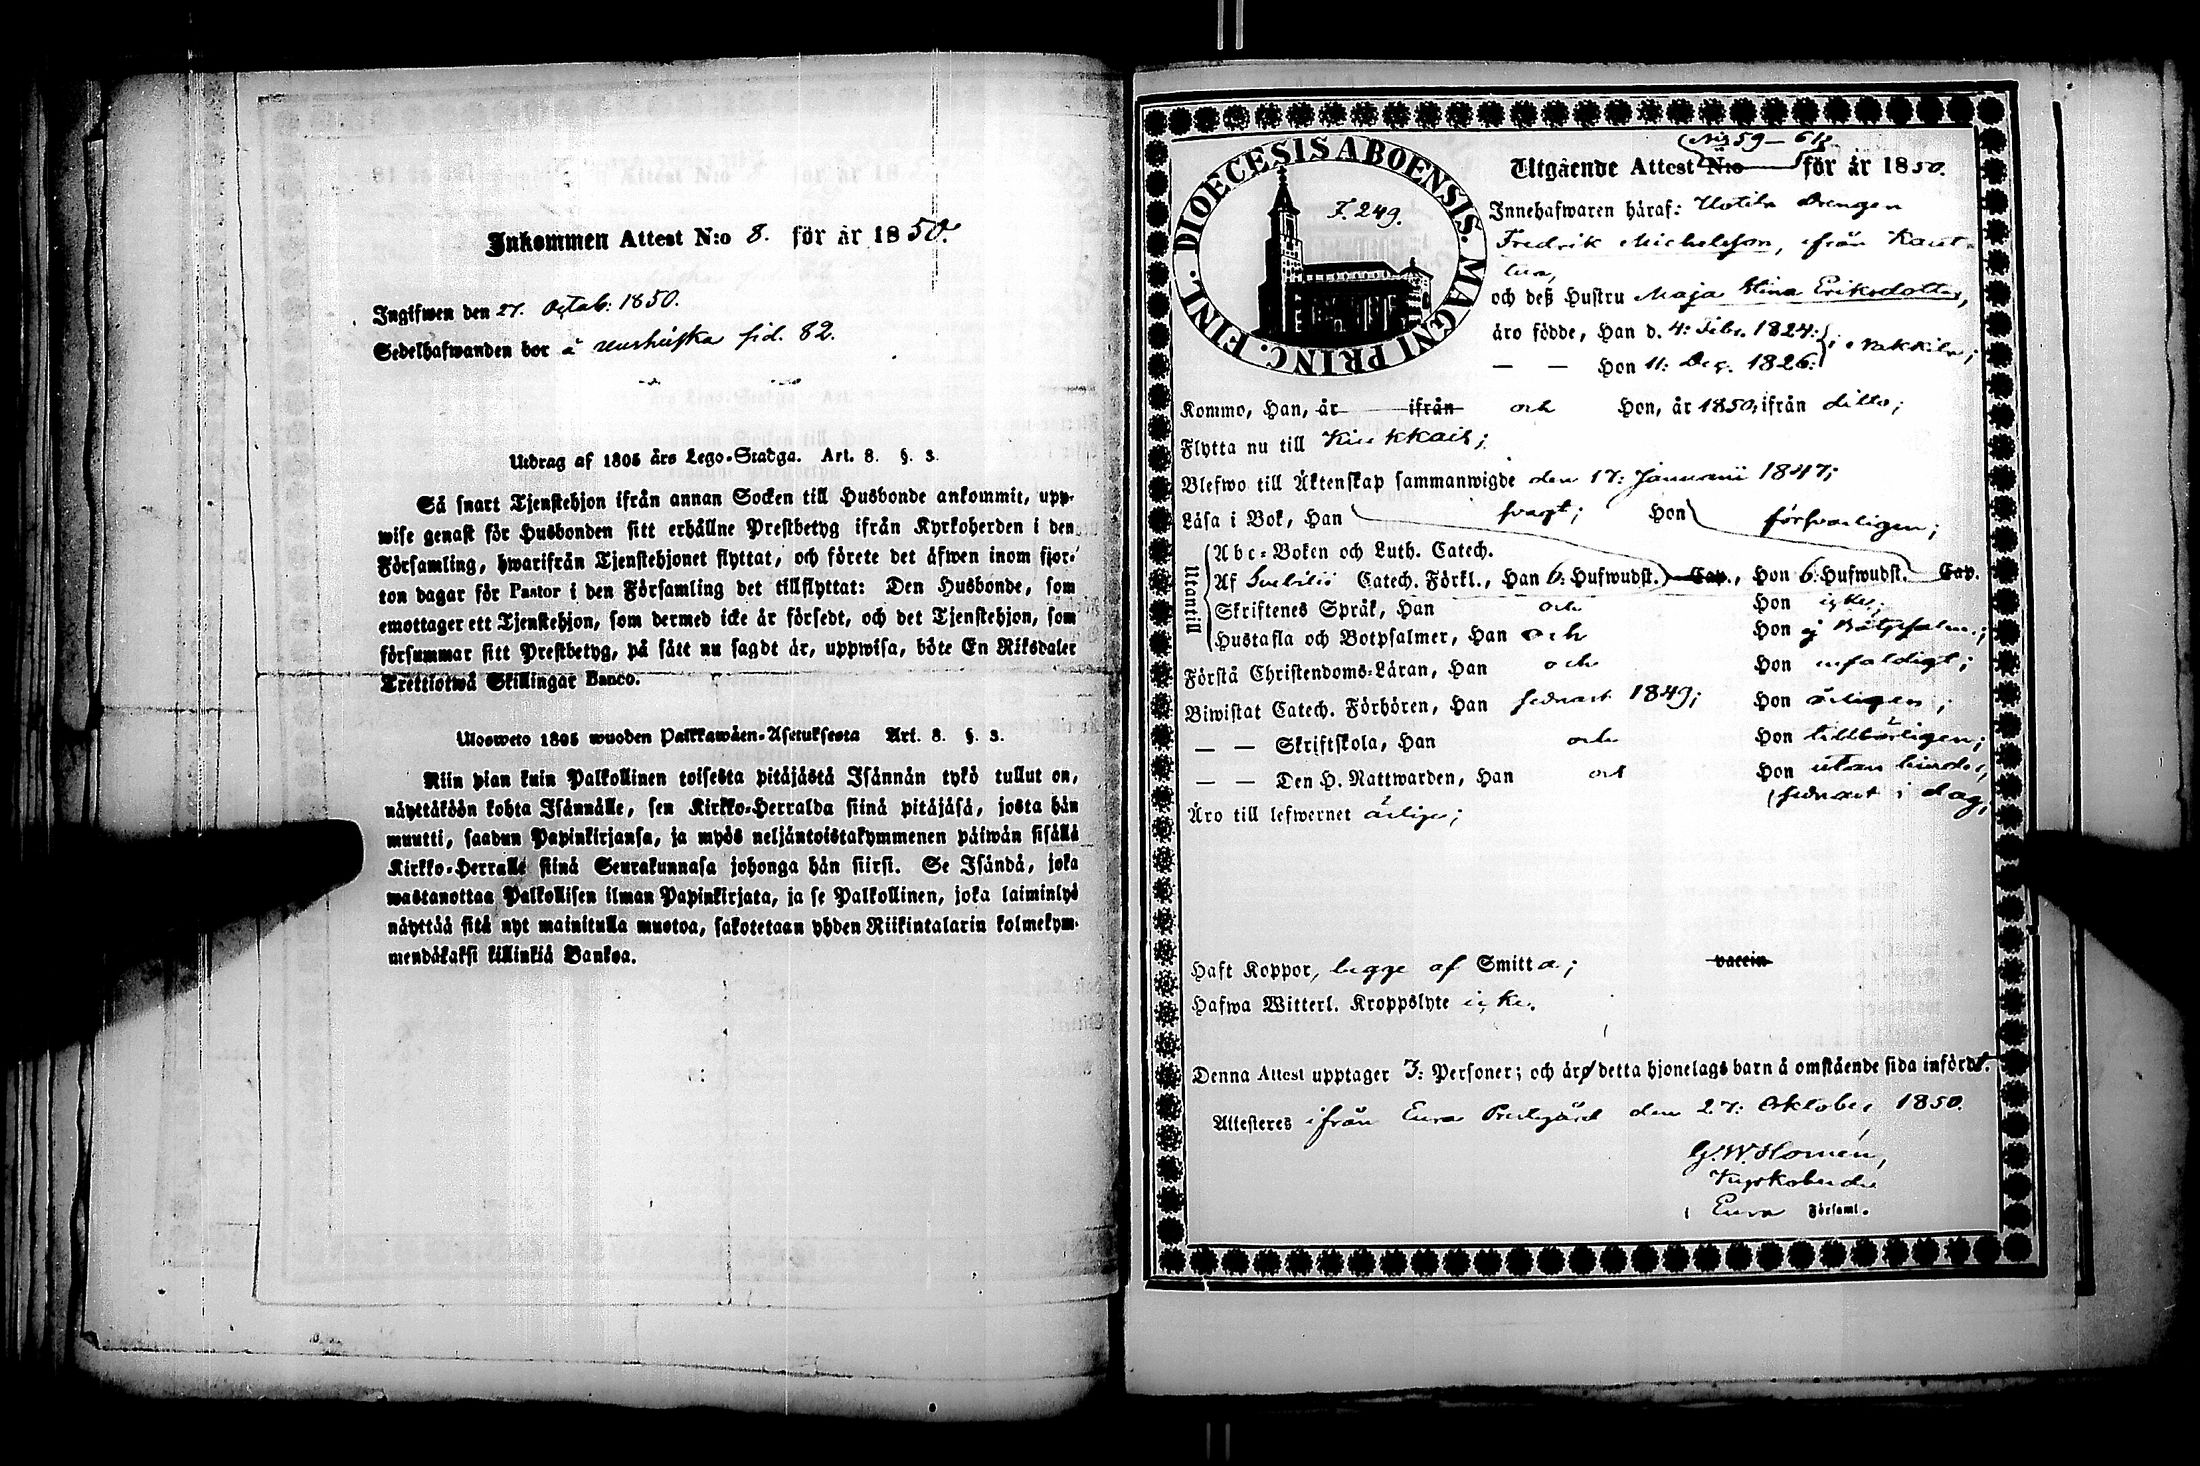 Inkommen Attest N:o 8. för år 1850.
Ingifwen den 27. Octob: 1850.
Sedelhafwanden bor å sid. 82.
Utdrag af 1805 års Lego-Stadga. Art. 8. §. 3.
Så snart Tjenstehjon ifrån annan Socken till Husbonde ankommit, upp-
wise genast för Husbonden sitt erhållne Prestbetyg ifrån Kyrkoherden i den
Församling, hwarifrån Tjenstehjonet flyttat, och förete det äfwen inom fjor-
ton dagar för Pastor i den Församling det tillflyttat: Den Husbonde, som
emottager ett Tjenstehjon, som dermed icke är försedt, och det Tjenstehjon, som
försummar sitt Prestbetyg, på sätt nu sagdt är, uppwisa, böte En Riksdaler
Trettiotwå Skillingar Banco.
Ulosweto 1805 wuoden Palkkawäen-Asetuksesta Art. 8. §. 3.
Niin pian kuin Palkollinen toisesta pitäjästä Isännän tykö tullut on,
näyttäköön kohta Isännälle, sen Kirkko-Herralda siinä pitäjäsä, josta hän
muutti, saadun Papinkirjansa, ja myös neljäntoistakymmenen päiwän sisällä
Kirkko-Herralle siinä Seurakunnasa johonga hän siirsi. Se Isändä, joka
wastanottaa Palkollisen ilman Papinkirjata, ja se Palkollinen, joka laiminlyö
näyttää sitä nyt mainitulla muotoa, sakotetaan yhden Riikintalarin kolmekym-
mendäkaksi killinkiä Bankoa.
DIOECESIS ABOENSIS. MAGNI PRINC. FINL.
F. 249.
N:is 59-61
Utgående Attest N:o för år 1850.
Innehafwaren häraf: Uotila Drengen
Fredrik Michelsson, ifrån Kaut-
tua,
och deß Hustru Maja Stina Eriksdotter,
äro födde, Han d. 4: Febr. 1824; i Nakkila;
— — Hon 11: Dec. 1826.
Kommo, Han, år ifrån och Hon, år 1850, ifrån ditto;
Flytta nu till Kiukkais;
Blefwo till Äktenskap sammanwigde den 17: Januarii 1847;
Läsa i Bok, Han svagt; Hon försvarligen;
Utantill
Abc-Boken och Luth. Catech.
Af Svebilii Catech. Förkl., Han 6: Hufwudst. Cap., Hon 6: Hufwudst. Cap.
Skriftenes Språk, Han och Hon icke;
Hustafla och Botpsalmer, Han och Hon ej Botpsalm.;
Förstå Christendoms-Läran, Han och Hon enfaldigt;
Biwistat Catech. Förhören, Han sednast 1849; Hon årligen;
— — Skriftskola, Han och Hon tillbörligen;
— — Den H. Nattwarden, Han och Hon utan hinder,
sednast i dag,
Äro till lefwernet ärlige;
Haft Koppor, begge af Smitta; vaccin
Hafwa Witterl. Kroppslyte icke.
Denna Attest upptager 3: Personer; och äro detta hjonelags barn å omstående sida införd.
Attesteres ifrån Eura Prestegård den 27: Oktober 1850.
G. W. Homén,
Kyrkoherde
i Eura Församl.